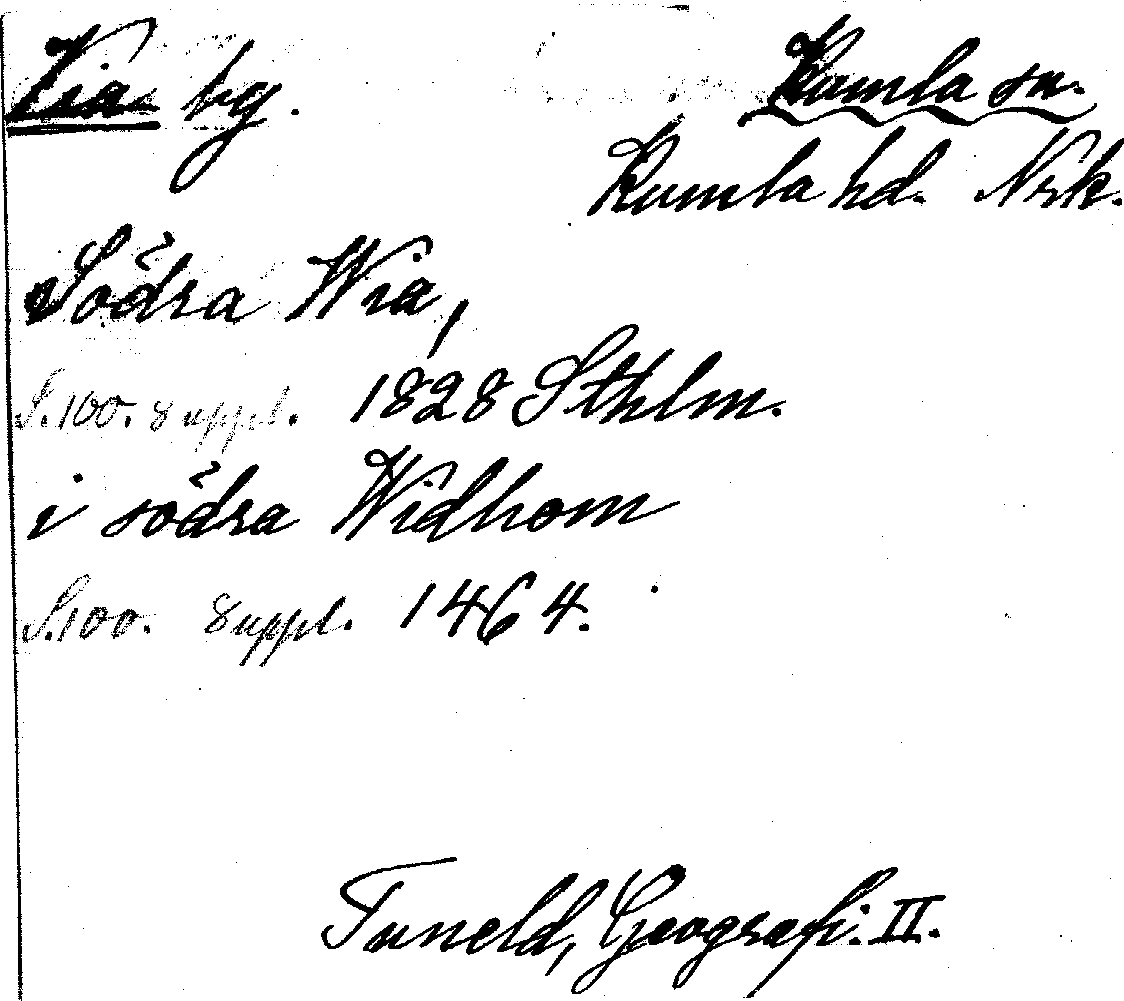 Via by.
Kumla sn.
Kumla hd. Nrk.
Södra Wia,
S. 100. suppl. 1828 Sthlm.
i södra Widhom
S. 100. Suppl. 1464.
Tuneld, Geografi. II.